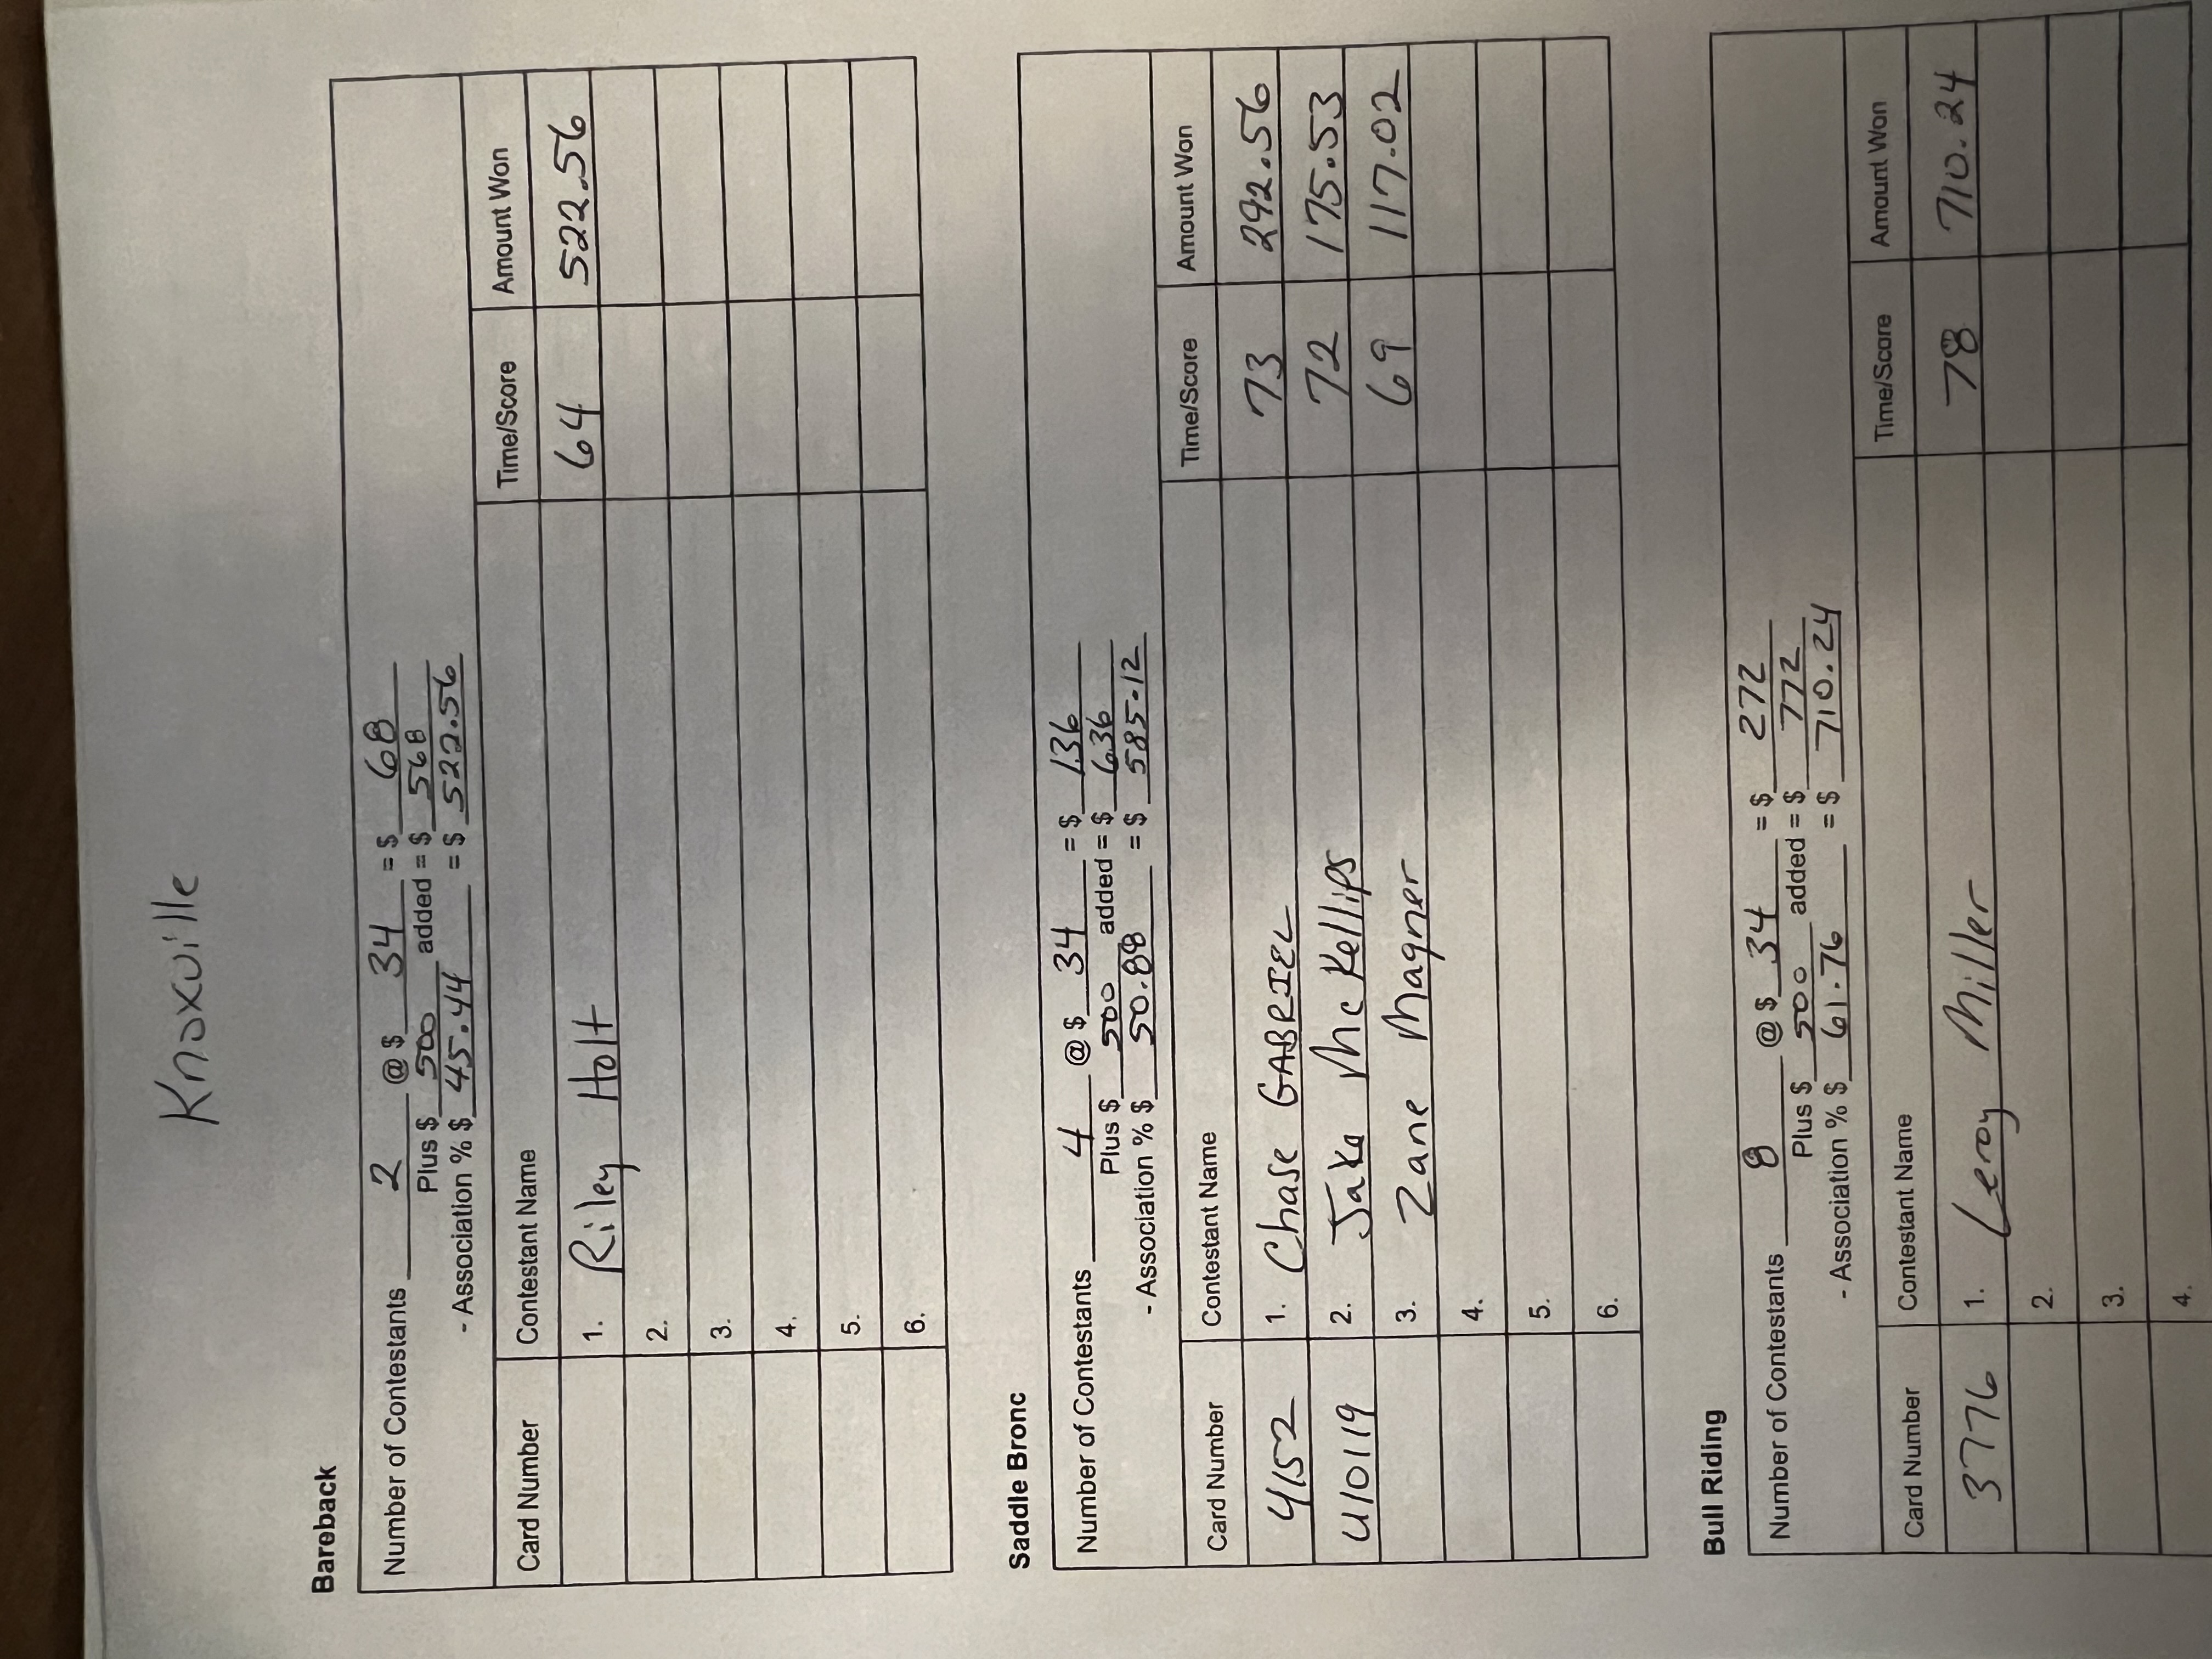 Knoxville
Bareback
Number of Contestants 2 @ $ 34 = $ 68
Plus $ 500 added = $ 568
- Association % $ 45.44 = $ 522.56
Card Number Contestant Name Time/Score Amount Won
1. Riley Holt 64 522.56
2.
3.
4.
5.
6.
Saddle Bronc
Number of Contestants 4 @ $ 34 = $ 136
Plus $ 500 added = $ 636
- Association % $ 50.88 = $ 585.12
Card Number Contestant Name Time/Score Amount Won
4152 1. Chase GABRIEL 73 292.56
U10119 2. Jake McKellips 72 175.53
3. Zane Magner 69 117.02
4.
5.
6.
Bull Riding
Number of Contestants 8 @ $ 34 = $ 272
Plus $ 500 added = $ 772
- Association % $ 61.76 = $ 710.24
Card Number Contestant Name Time/Score Amount Won
3776 1. Leroy Miller 78 710.24
2.
3.
4.